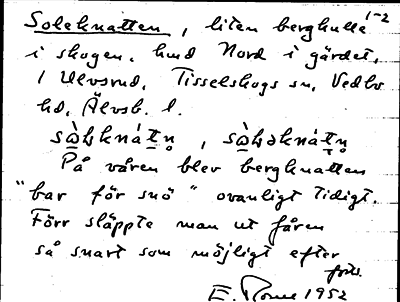 Soleknatten, liten bergkulle 1-2
i skogen, hmd Nord i gärdet,
1 Ulvsrud, Tisselskogs sn, Vedbo
hd, Älvsb. l.
På våren blev bergknatten
"bar för snö" ovanligt tidigt.
Förr släppte man ut fåren
så snart som möjligt efter
forts.
1952